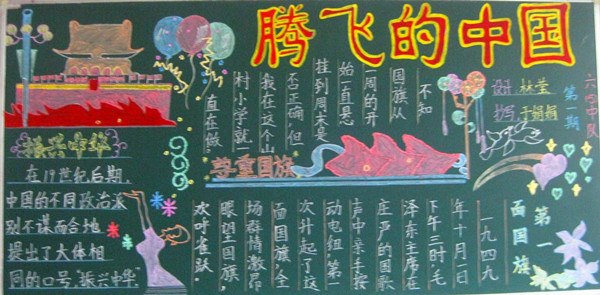 腾飞的中国
第一期
设计
抄写
振兴中华
在19世纪后期,
中国的不同政治派
别不谋而合地
提出了大体相
同的口号"振兴中华"
尊重国旗
不知
国旗从
一周的开
始一直悬
挂到周末是
否正确,但
我在这个山
村小学就
直在做
第一
面国旗
一九四九
年十月一日
下午三时,毛
泽东主席在
庄严的国歌
声中亲手按
动电纽,第一
次升起了这
面国旗,全
场群情激昂
眼望国旗,
欢呼雀跃.